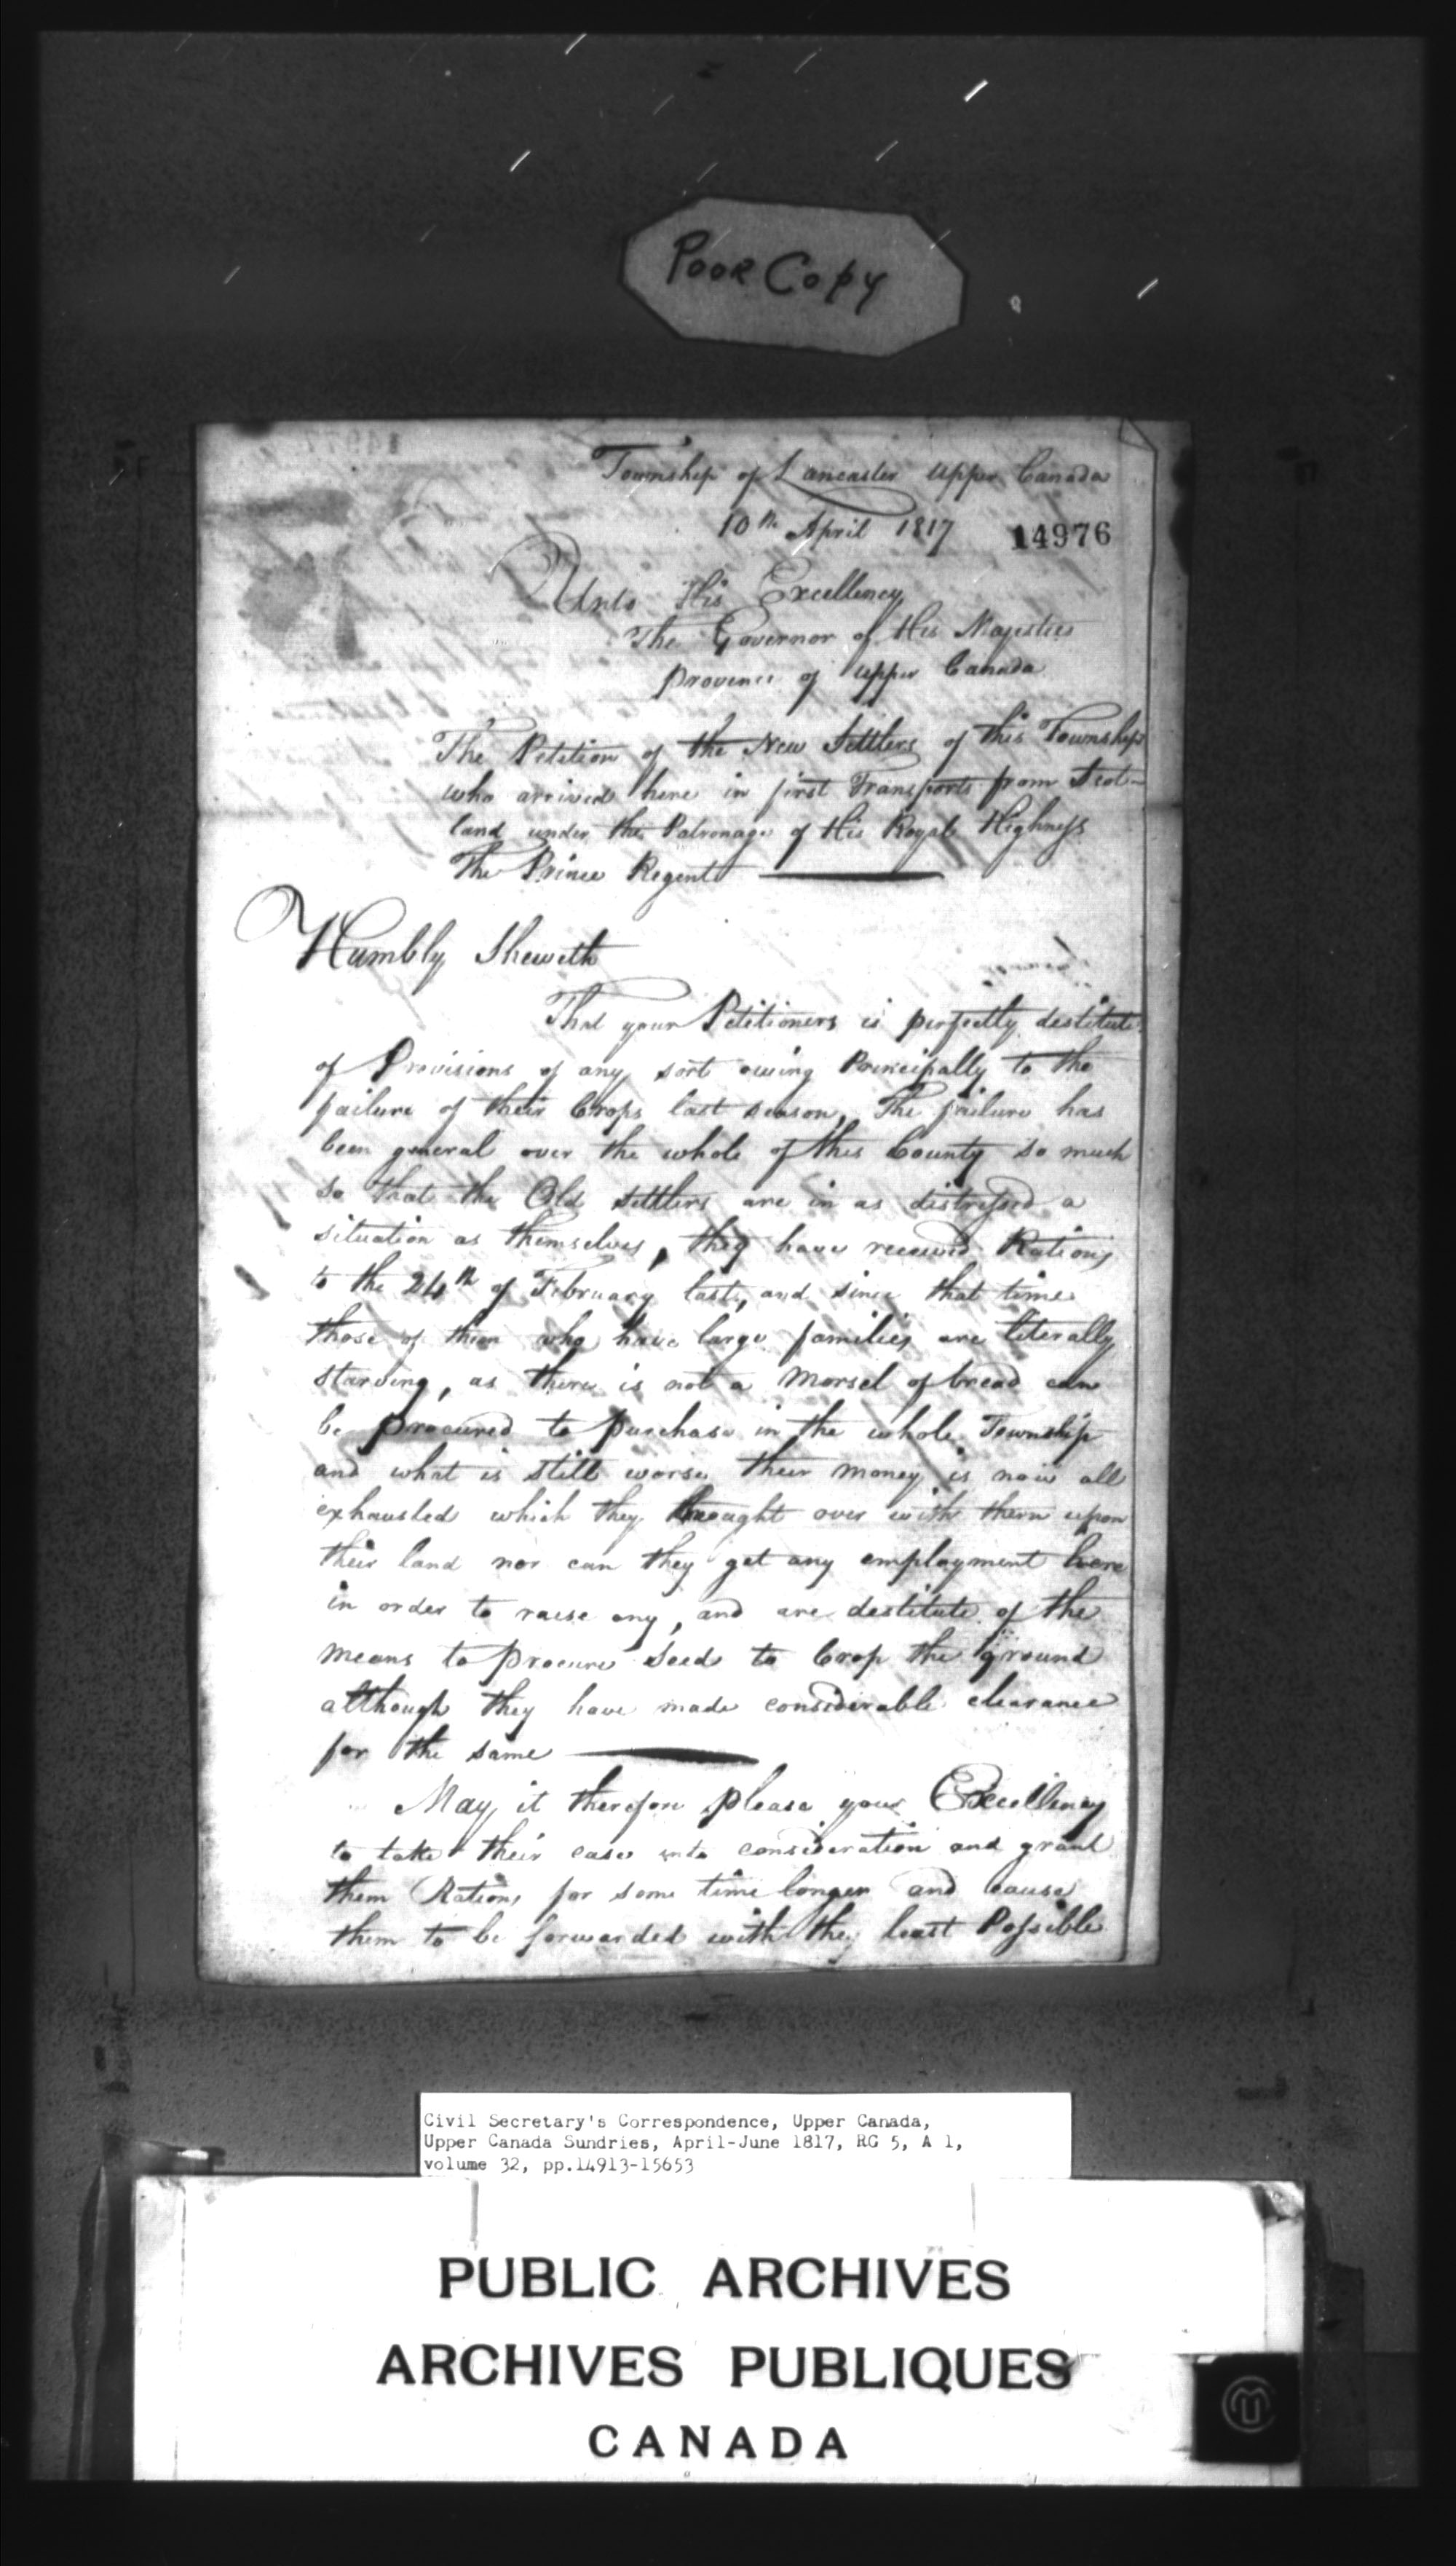 Poor Copy
Township of Lancaster Upper Canada
10th April 1817 14976
Unto His Excellency
The Governor of His Majesties
Province of Upper Canada
The Petition of the New Settlers of this Township
who arrived here in first Transports from Scot-
land under the Patronage of His Royal Highness
The Prince Regent
Humbly Sheweth
That your Petitioners is perfectly destitute
of Provisions of any sort owing Principally to the
failure of their Crops last season, The failure has
been general over the whole of this County so much
so that the Old Settlers are in as distressed a
situation as themselves, they have received Rations
to the 24th of February last, and since that time
those of them who have large families are literally
starving, as there is not a Morsel of bread can
be procured to purchase in the whole Township
and what is still worse their money is now all
exhausted which they brought over with them upon
their land nor can they get any employment here
in order to raise any, and are destitute of the
means to procure Seed to Crop the ground
although they have made considerable clearance
for the same
May it therefore please your Excellency
to take their case into consideration and grant
them Rations for some time longer and cause
them to be forwarded with the least Possible
Civil Secretary's Correspondence, Upper Canada,
Upper Canada Sundries, April-June 1817, RG 5, A 1,
volume 32, pp.14913-15653
PUBLIC ARCHIVES
ARCHIVES PUBLIQUES
CANADA